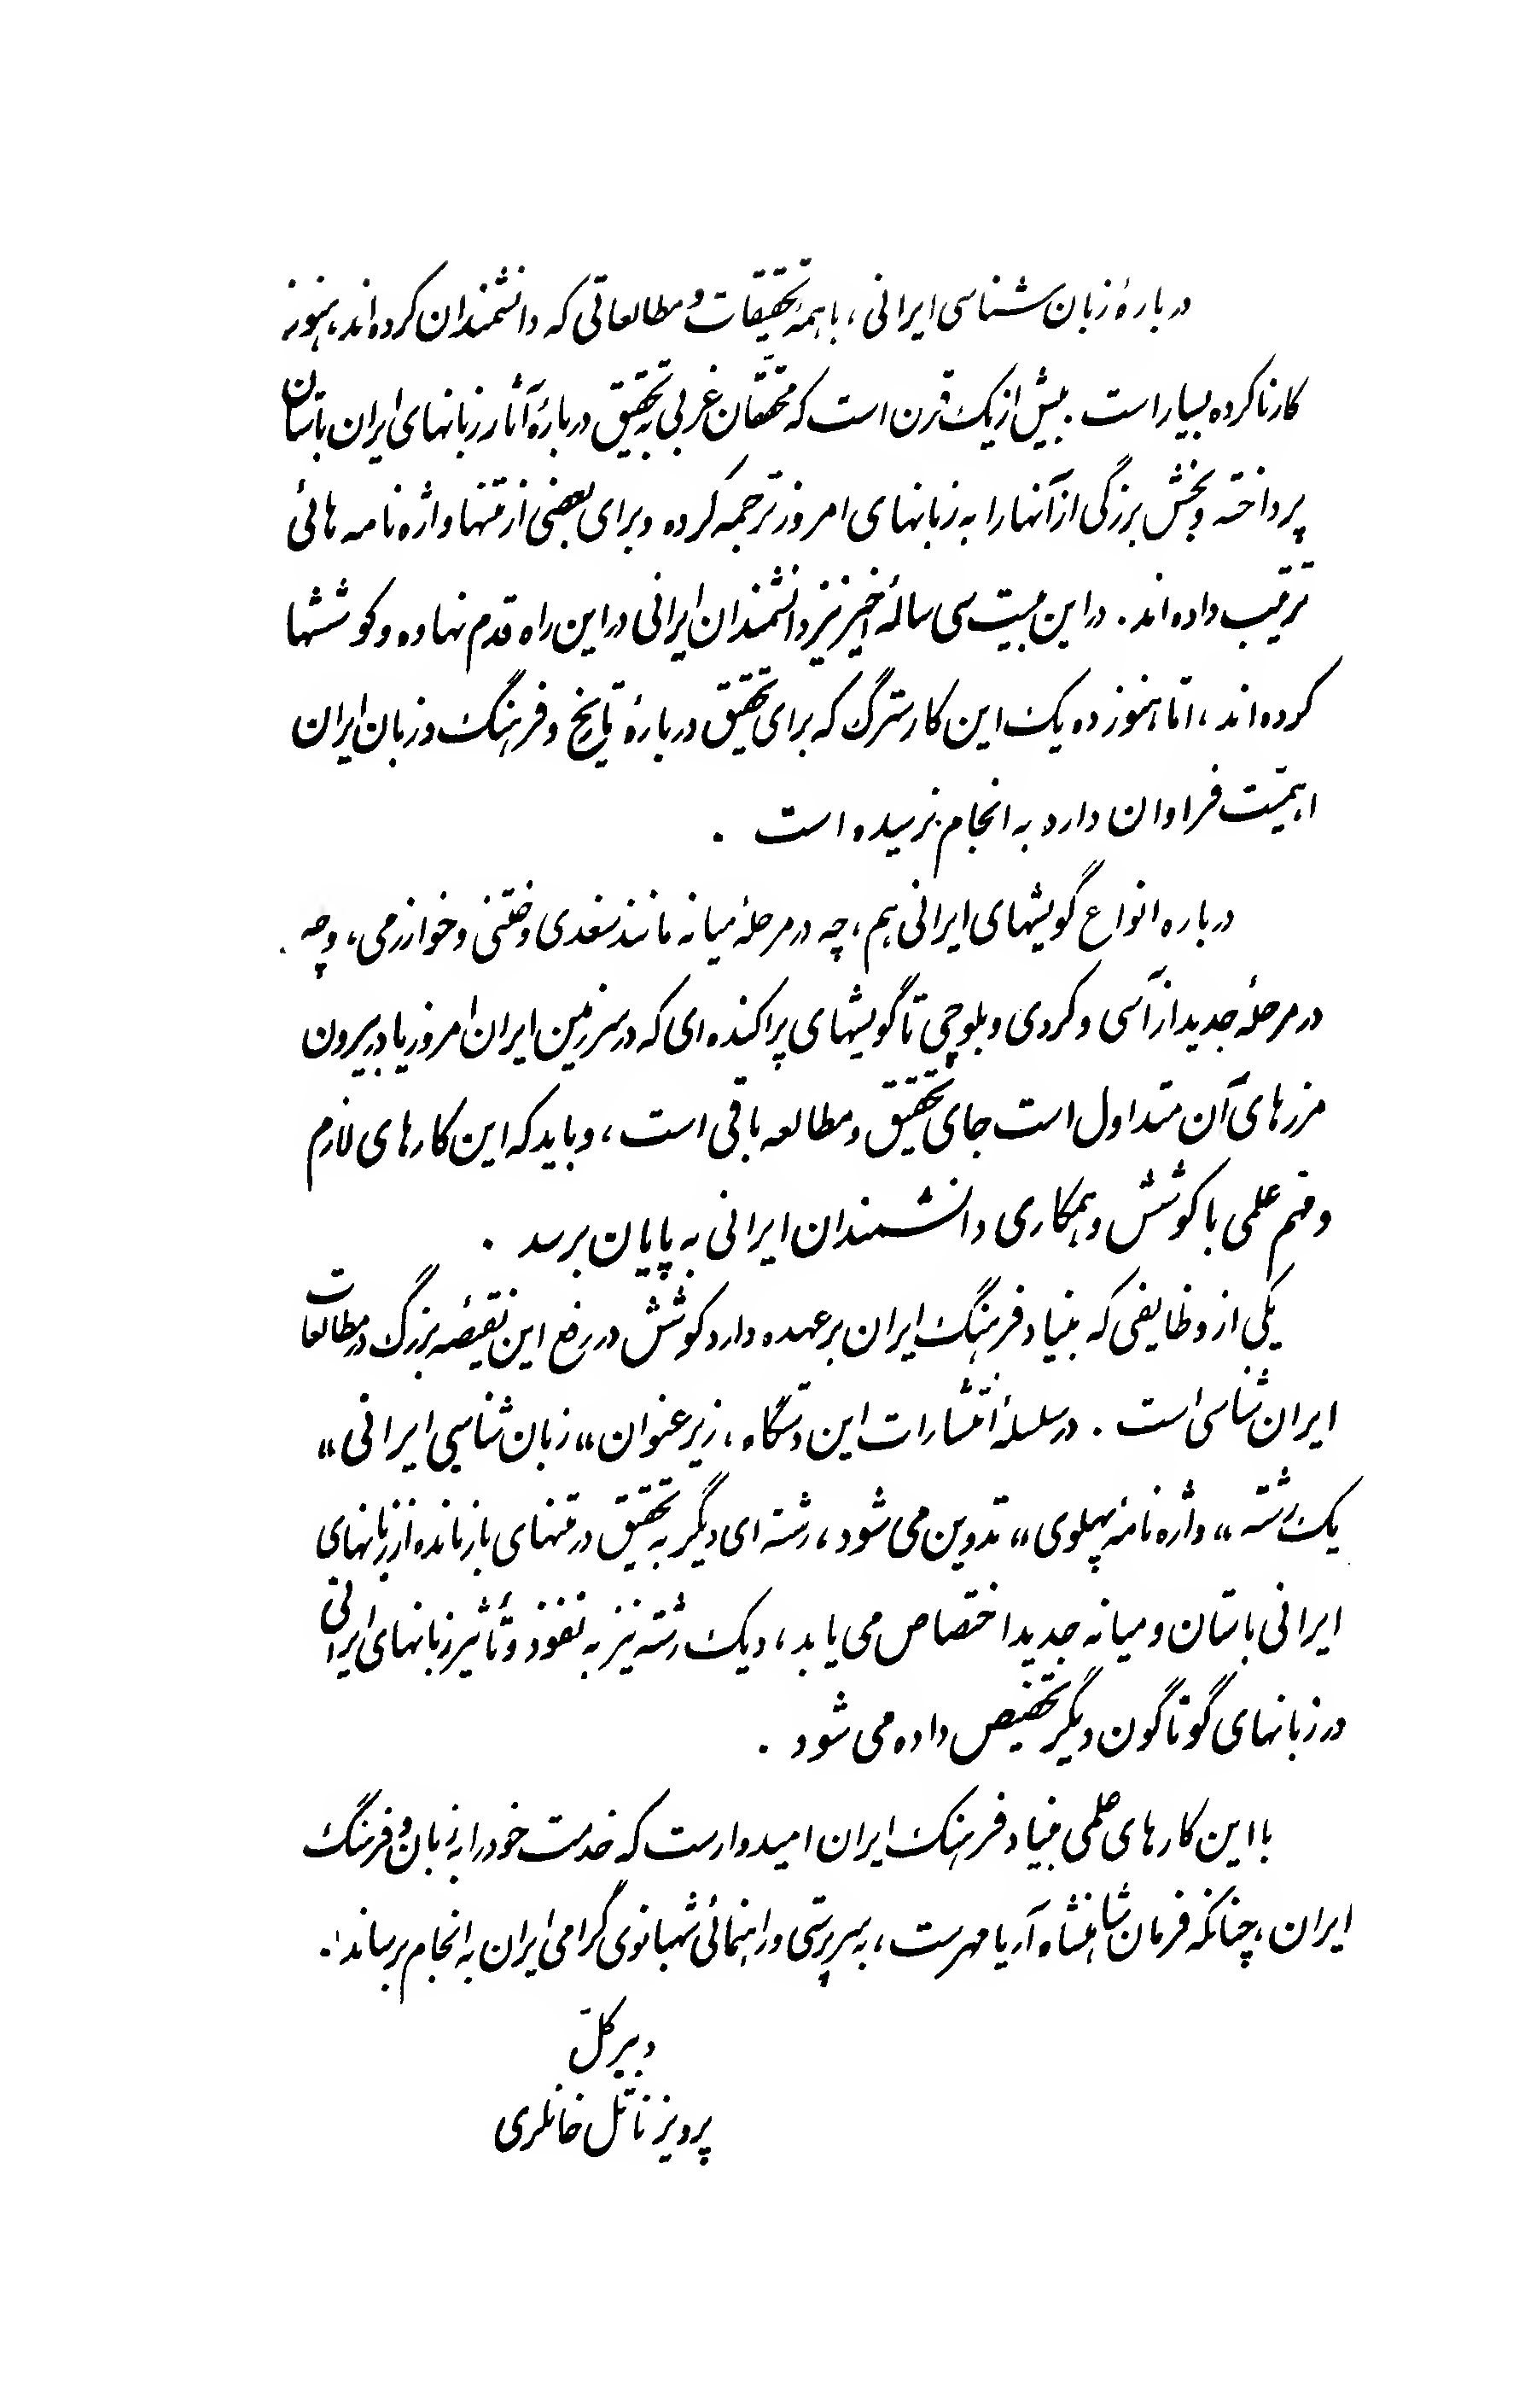 دربارهٔ زبان شناسی ایرانی ، با همهٔ تحقیقات و مطالعاتی که دانشمندان کرده اند، هنوز
کار ناکرده بسیار است . بیش از یک قرن است که محققان غربی به تحقیق دربارهٔ آثار زبانهای ایران باستان
پرداخته و بخش بزرگی از آنها را به زبانهای امروز ترجمه کرده و برای بعضی از متنها واژه نامه هائی
ترتیب داده اند . در این بیست سی سالهٔ اخیر نیز دانشمندان ایرانی در این راه قدم نهاده و کوششها
کرده اند ، امّا هنوز ده یک این کار سترگ که برای تحقیق دربارهٔ تاریخ و فرهنگ و زبان ایران
اهمیّت فراوان دارد به انجام نرسیده است .
درباره انواع گویشهای ایرانی هم ، چه در مرحلهٔ میانه مانند سغدی و ختنی و خوارزمی ، و چه
در مرحلهٔ جدید از آسی و کردی و بلوچی تا گویشهای پراکنده ای که در سرزمین ایران امروز یا در بیرون
مرزهای آن متداول است جای تحقیق و مطالعه باقی است ، و باید که این کارهای لازم
و مهم علمی با کوشش و همکاری دانشمندان ایرانی به پایان برسد .
یکی از وظایفی که بنیاد فرهنگ ایران بر عهده دارد کوشش در رفع این نقیصهٔ بزرگ در مطالعات
ایران شناسی است . در سلسلهٔ انتشارات این دستگاه ، زیر عنوان «زبان شناسی ایرانی»
یک رشته «واژه نامهٔ پهلوی» تدوین می شود ، رشته ای دیگر به تحقیق در متنهای بازمانده از زبانهای
ایرانی باستان و میانه جدید اختصاص می یابد ، و یک رشته نیز به نفوذ و تأثیر زبانهای ایرانی
در زبانهای گوناگون دیگر تخصیص داده می شود .
با این کارهای علمی بنیاد فرهنگ ایران امیدوارست که خدمت خود را به زبان و فرهنگ
ایران ، چنانکه فرمان شاهنشاه آریامهرست ، به سرپرستی و راهنمائی شهبانوی گرامی ایران به انجام برساند .
دبیر کلّ
پرویز ناتل خانلری